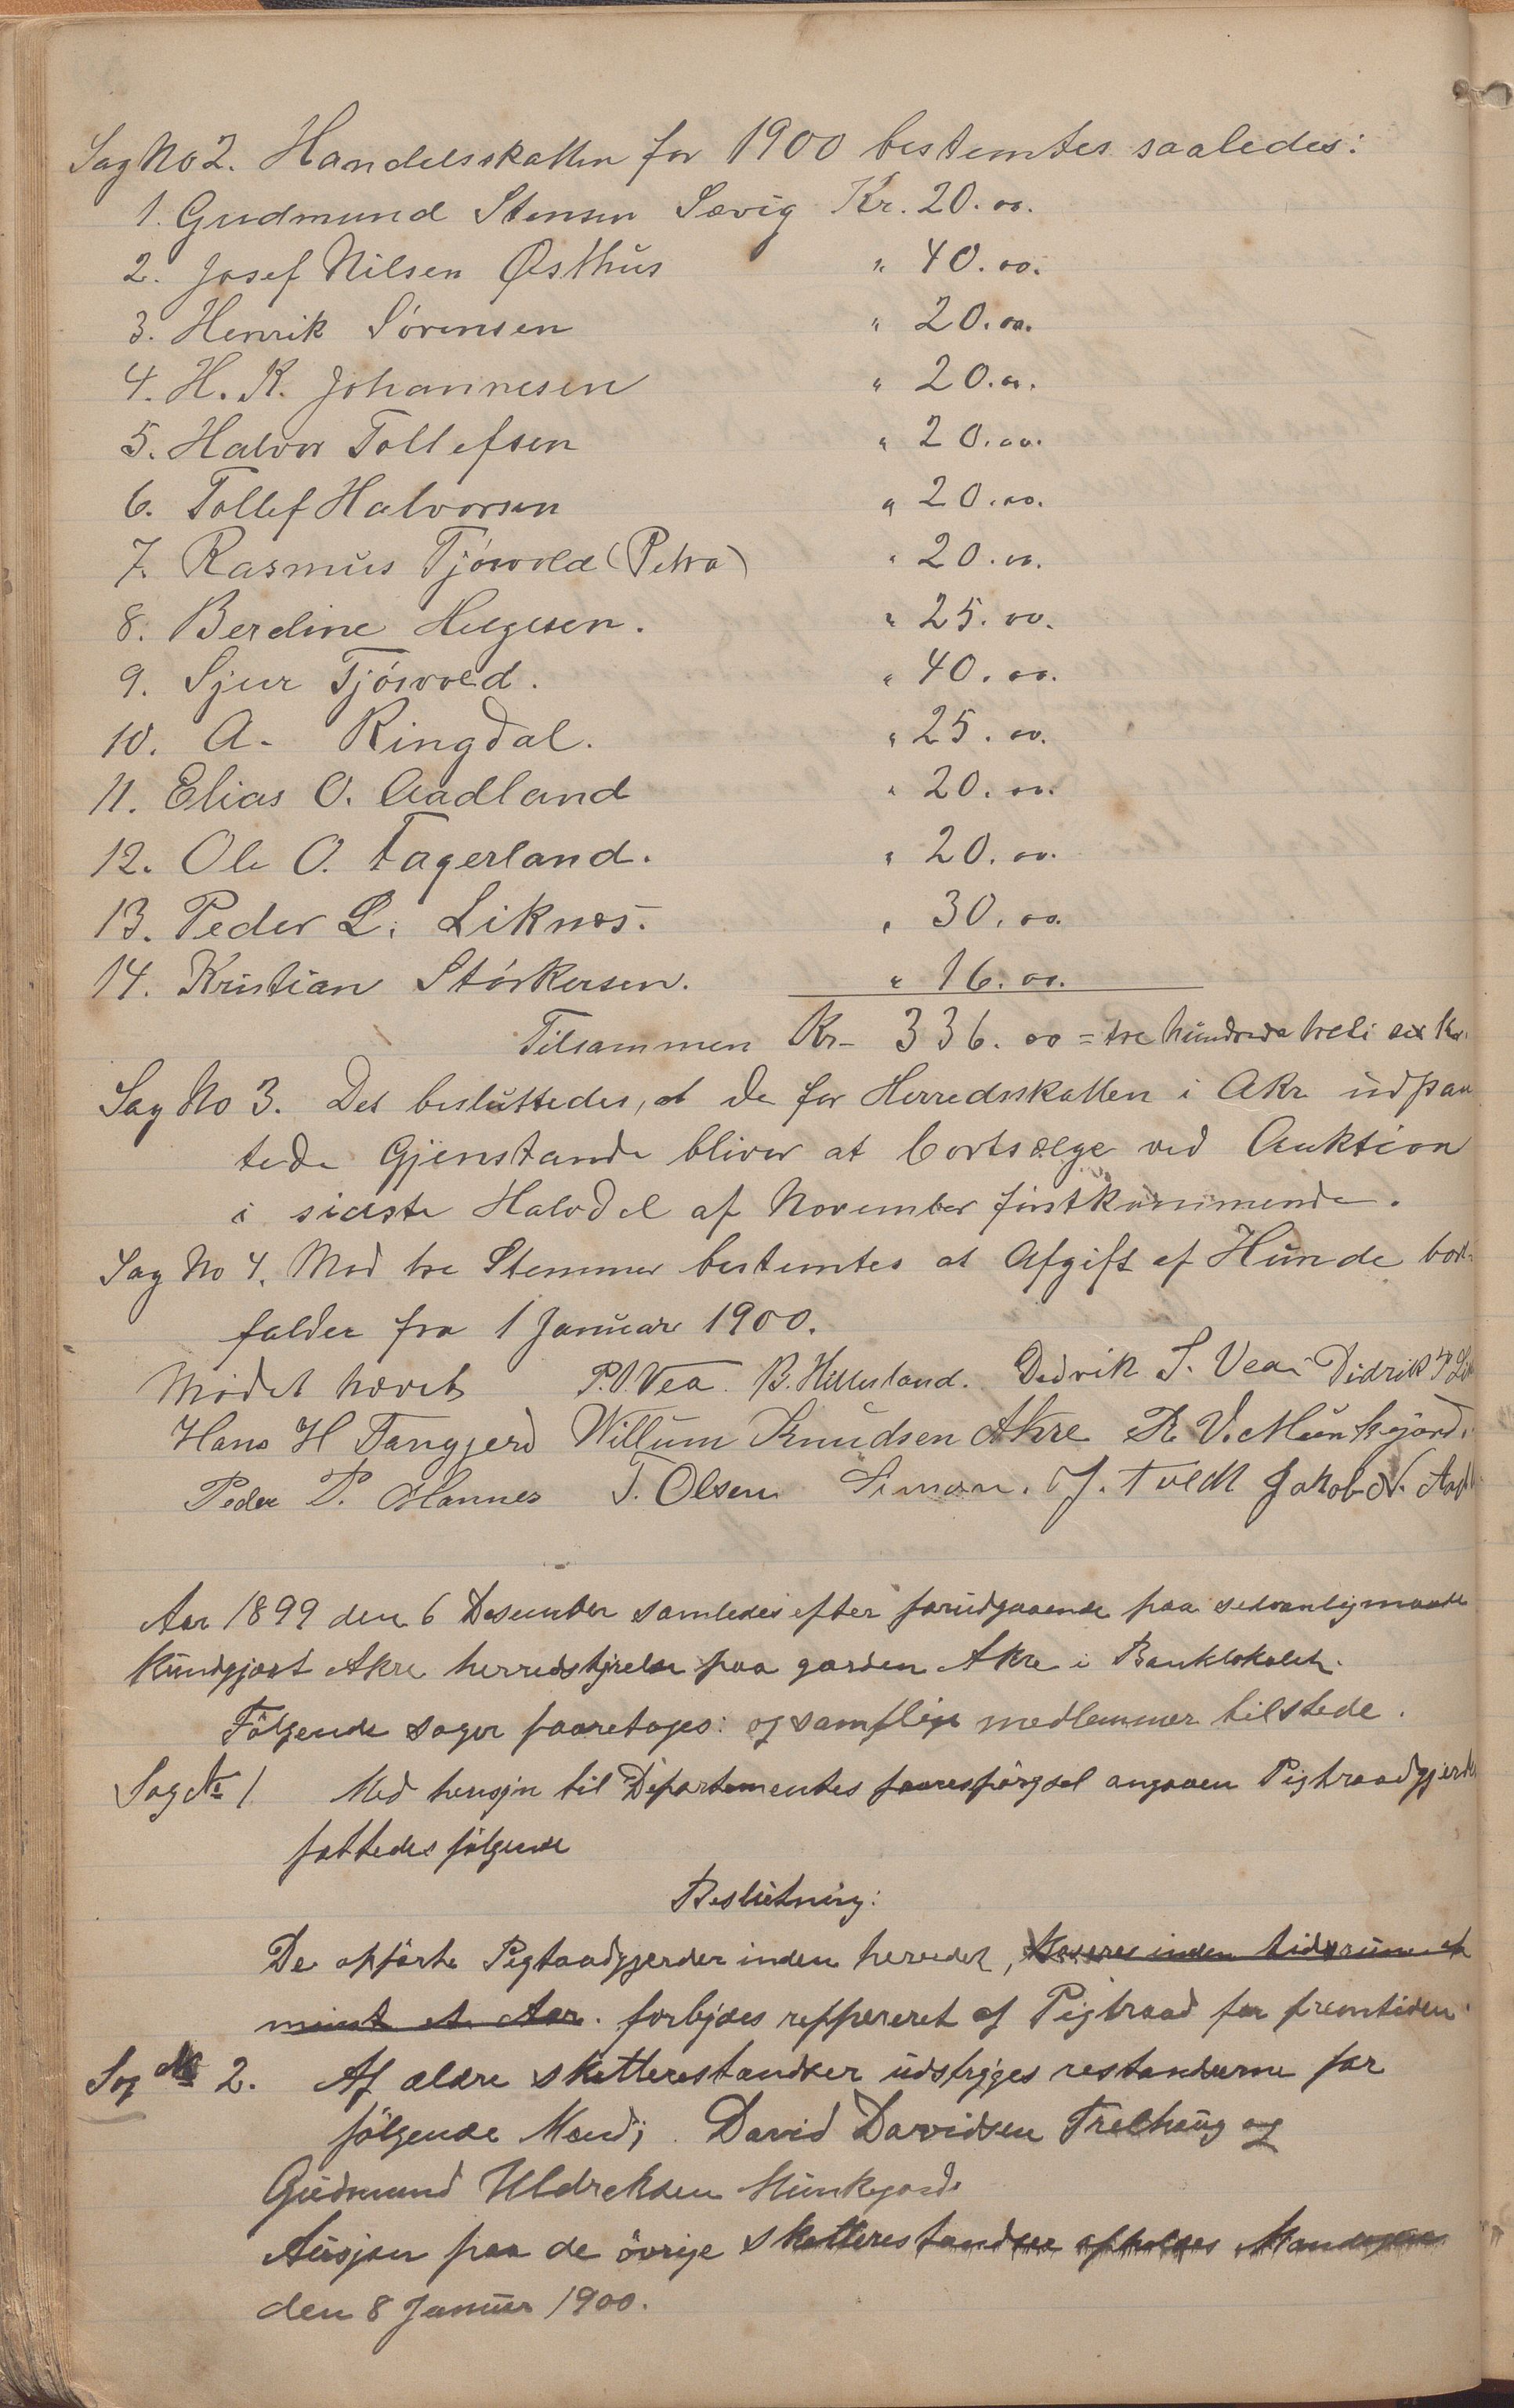 Sag No 2. Handelsskatten for 1900 bestemtes saaledes:
1. Gudmund Stensen Sævig Kr. 20.00.
2. Josef Nilsen Østhus " 40.00.
3. Henrik Sørensen " 20.00.
4. H. K. Johannesen " 20.00.
5. Halvor Tollefsen " 20.00.
6. Tollef Halvorsen " 20.00.
7. Rasmus Tjøsvold (Petra) " 20.00.
8. Berdine Helgesen. " 25.00.
9. Sjur Tjøsvold. " 40.00.
10. A. Ringdal. " 25.00.
11. Elias O. Aadland " 20.00.
12. Ole O. Fagerland. " 20.00.
13. Peder L. Liknæs. " 30.00.
14. Kristian Størkersen. " 16.00.
Tilsammen Kr. 336.00 = tre hundrede treti sex Kr.
Sag No 3. Det besluttedes, at de for Herredsskatten i Akre udpan
tede Gjenstande bliver at bortsælge ved Auktion
i sidste Halvdel af November førstkommende.
Sag No 4. Mod tre Stemmer bestemtes at Afgift af Hunde bort
falder fra 1 Januar 1900.
Mødet hævet P.O. Vea B. Hillesland. Didrik S. Vea Didrik
Hans H Tangjerd Willum Knudsen Akre R V. Munkejord.
Peder P. Hannes T. Olsen Simon. J. Tvedt Jakob N.
Aar 1899 den 6 Desember samledes efter forudgaaende paa sedvanlig maade
kundgjort Akre herredstyrelse paa garden Akre i Banklokalet.
Følgende sager foretoges: og samflige medlemmer tilstede.
Sag No 1 Med hensyn til Departementes foorespørgsel angaaen Pigtraadgjerder
fattedes følgende
Beslutning:
De opførte Pigtaadgjerder inden herredet, inden tidsrum et
minst et Aar. forbydes reppereret af Pigtraad for fremtiden.
Sag No 2. Af ældre skatterestandser udstryges restanserne for
følgende Mænd; David Davidsen Trælhaug og
Gudmund Uldreksen Munkejord.
Ausjon paa de øvrige skatterestandser afholdes Mandagen
den 8 Januar 1900.